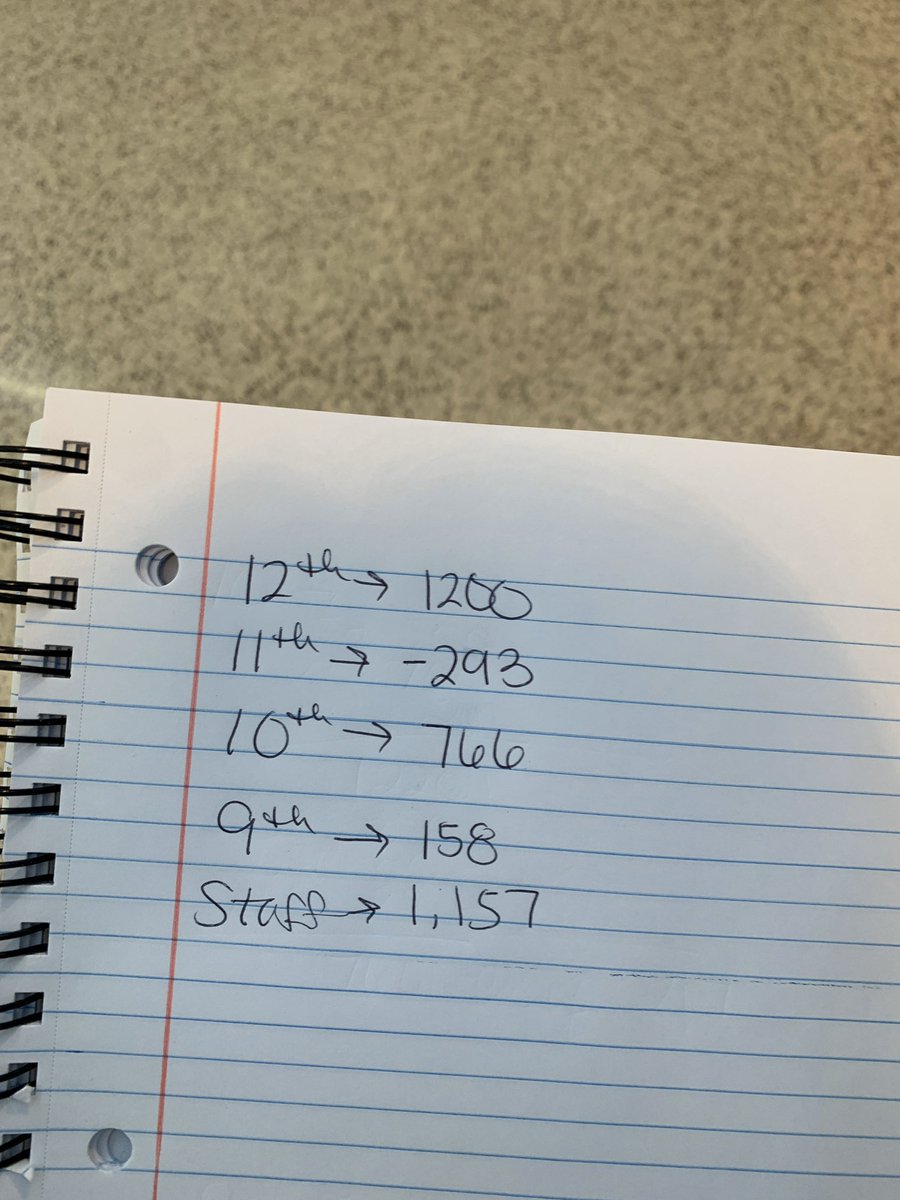 12th → 1200
11th → -293
10th → 766
9th → 158
Staff → 1,157